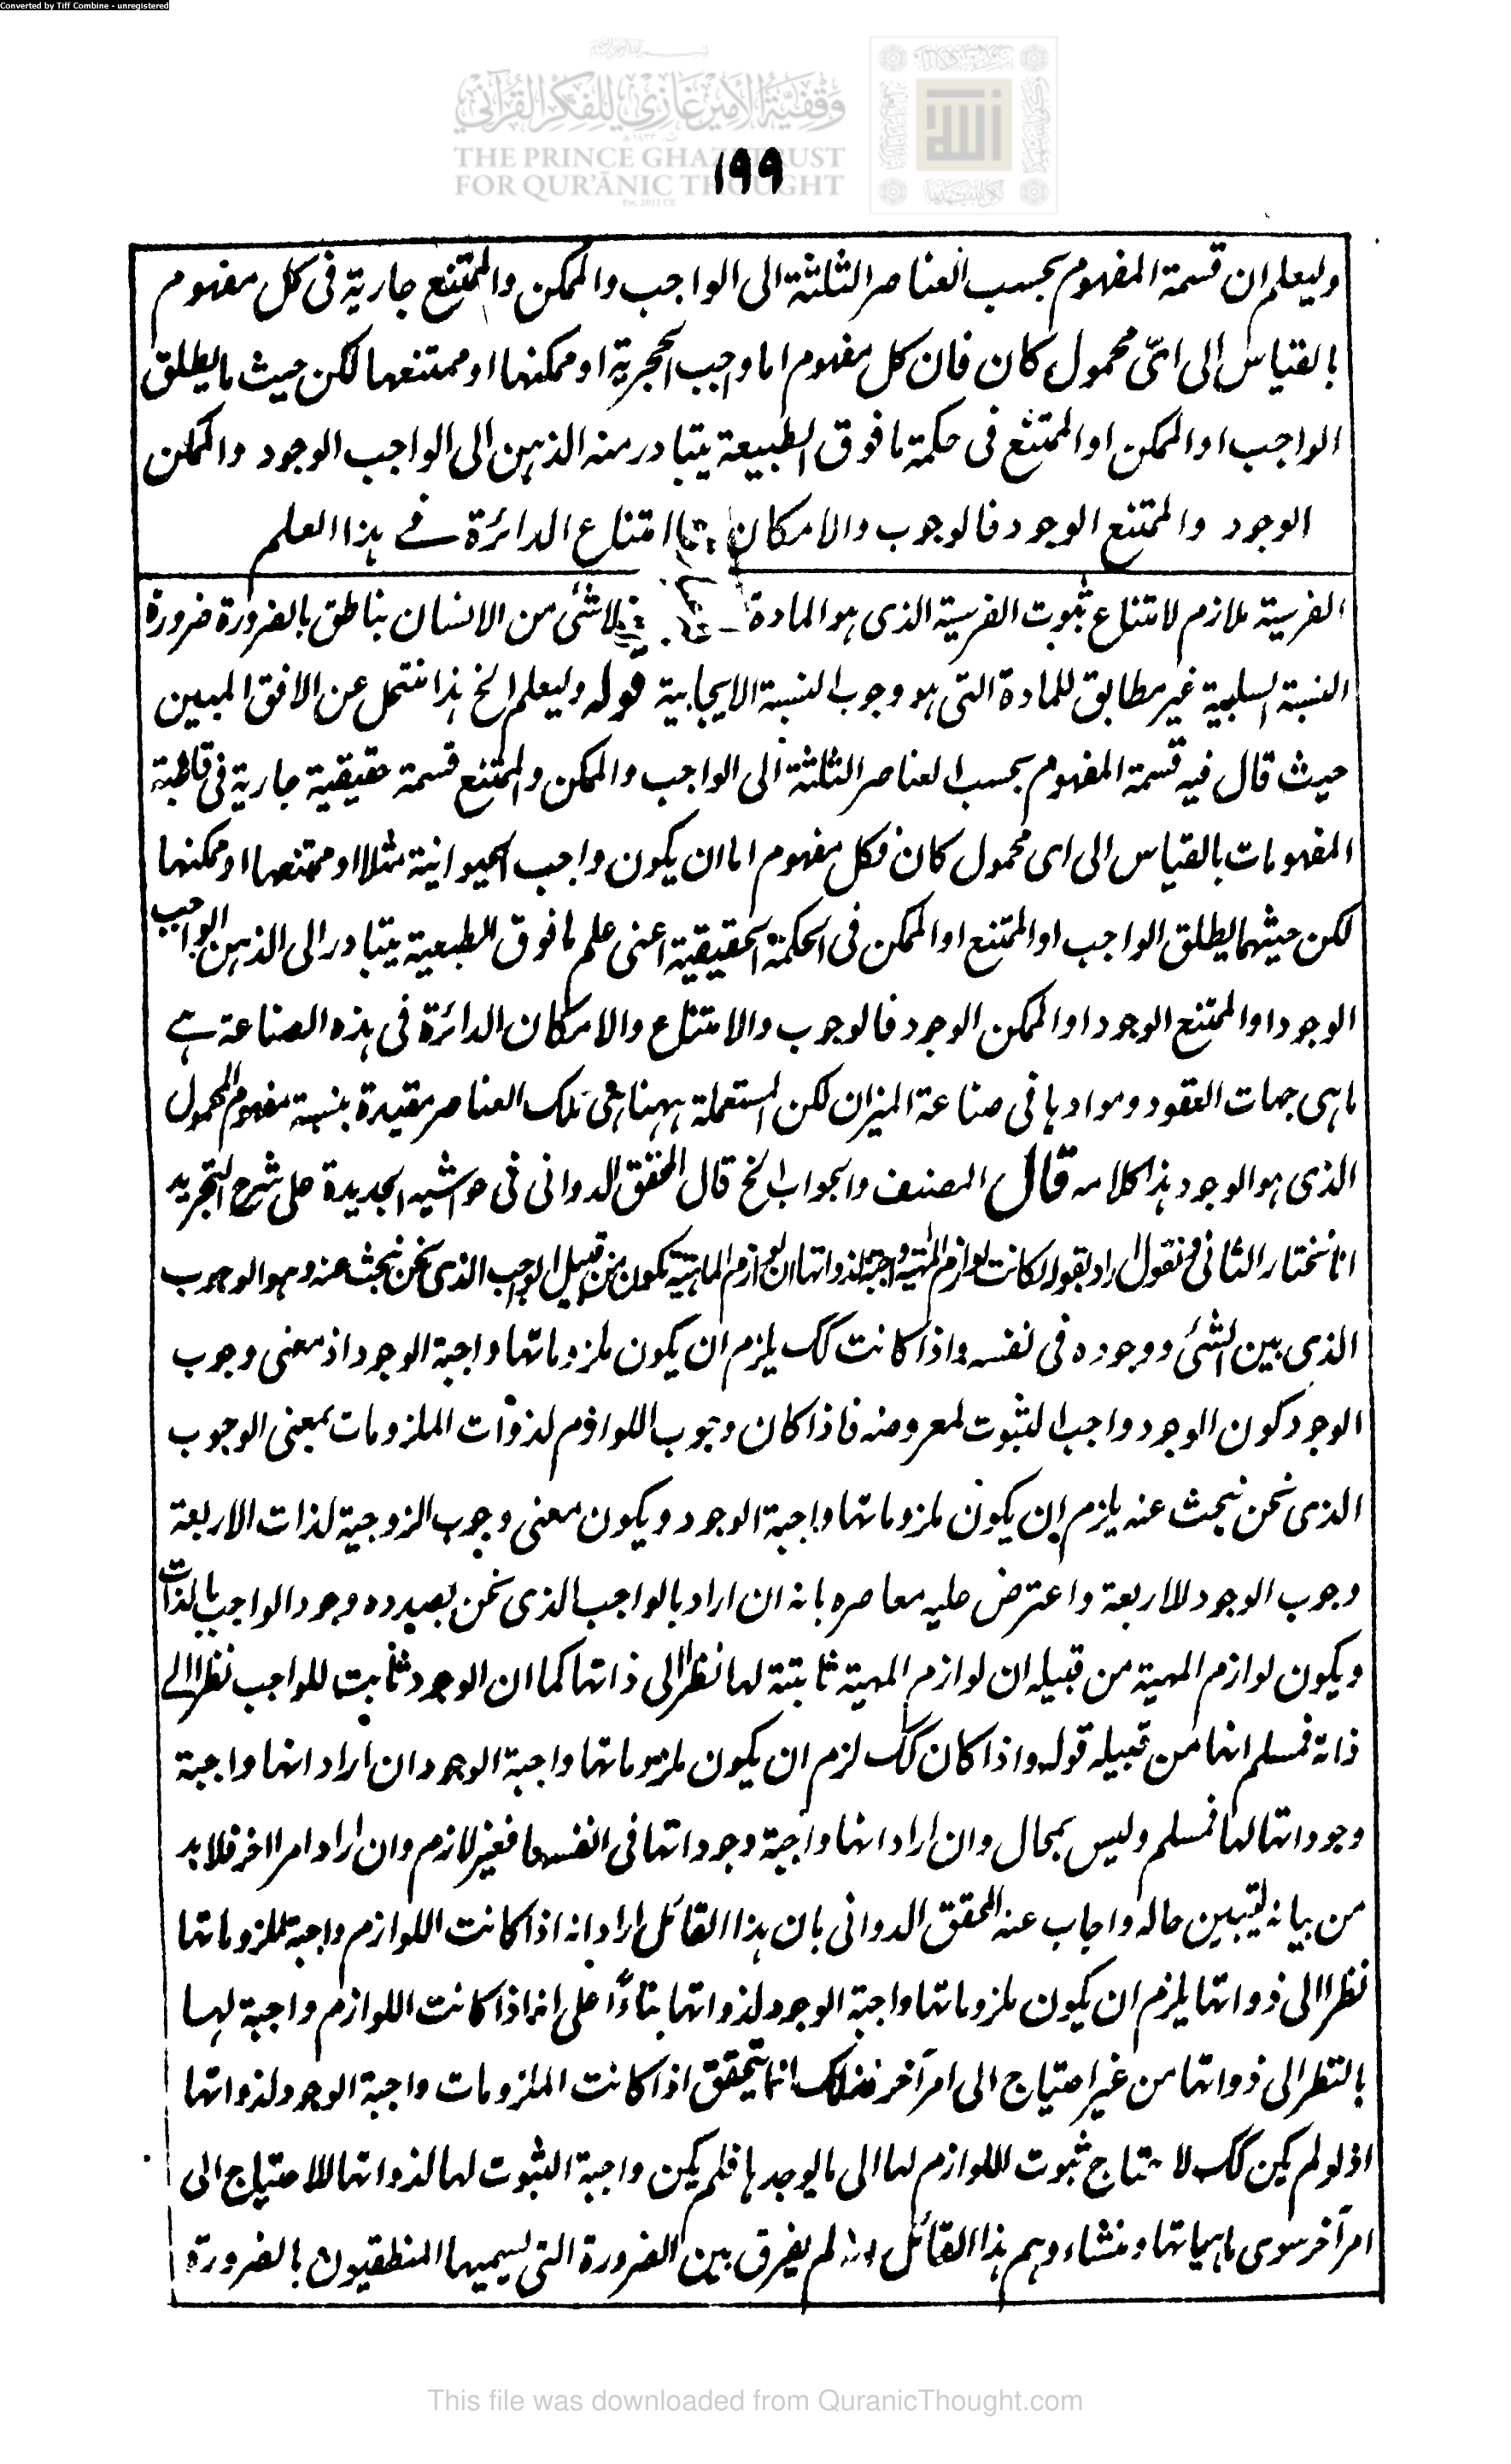 Converted by Tiff Combine - unregistered
وقفية الأمير غازي للفكر القرآني
THE PRINCE GHAZI TRUST
FOR QUR'ĀNIC THOUGHT
١٩٩
وليعلم ان قسمة المفهوم بحسب العناصر الثلثة الى الواجب والممكن والممتنع جارية فى كل مفهوم
بالقياس الى اىّ محمول كان فان كل مفهوم اما واجب الحجرية او ممكنها او ممتنعها لكن حيث ما يطلق
الواجب او الممكن او الممتنع فى حكمة ما فوق الطبيعة يتبادر منه الذهن الى الواجب الوجود والممكن
الوجود والممتنع الوجود فالوجوب والامكان والامتناع الدائرة فے هذا العلم
الفرسية ملازم لامتناع ثبوت الفرسية الذى هو المادة لا شئ من الانسان بناطق بالضرورة ضرورة
النسبة السلبية غير مطابق للمادة التى هو وجوب النسبة الايجابية قوله وليعلم الخ هذا منتحل عن الافق المبين
حيث قال فيه قسمة المفهوم بحسب العناصر الثلثة الى الواجب والممكن والممتنع قسمة حقيقية جارية فى قاطبة
المفهومات بالقياس الى اى محمول كان فكل مفهوم اما ان يكون واجب الحيوانية مثلا او ممتنعها او ممكنها
لكن حيثما يطلق الواجب او الممتنع او الممكن فى الحكمة الحقيقية اعنى علم ما فوق الطبعية يتبادر الى الذهن الواجب
الوجود او الممتنع الوجود او الممكن الوجود فالوجوب والامتناع والامكان الدائرة فى هذه الصناعة هے
ما هى جهات العقود وموادها فى صناعة الميزان لكن المستعملة ههنا هى تلك العناصر مقيدة بنسبة مفهوم المحمول
الذى هو الوجود هذا كلامه قال المصنف والجواب الخ قال المحقق الدوانى فى حواشيه الجديدة على شرح التجريد
انا نختار الثانى ونقول اراد بقوله لكانت لوازم المهية واجبة لذواتها ان لوازم الماهية تكون من قبيل الواجب الذى نحن نبحث عنه وهو الوجوب
الذى بين الشئ ووجوده فى نفسه واذا كانت كك يلزم ان يكون ملزوماتها واجبة الوجود اذ معنى وجوب
الوجود كون الوجود واجب الثبوت لمعروضه فاذا كان وجوب اللوازم لذوات الملزومات بمعنى الوجوب
الذى نحن نبحث عنه يلزم ان يكون ملزوماتها واجبة الوجود ويكون معنى وجوب الزوجية لذات الاربعة
وجوب الوجود للاربعة واعترض عليه معاصره بانه ان اراد بالواجب الذى نحن بصدده وجود الواجب بالذات
ويكون لوازم المهية من قبيله ان لوازم المهية ثابتة لها نظرا الى ذاتها كما ان الوجود ثابت للواجب نظرا الے
ذاته فمسلم انها من قبيله قوله واذا كان كك لزم ان يكون ملزوماتها واجبة الوجود ان اراد انها واجبة
وجوداتها لها فمسلم وليس بمحال وان اراد انها واجبة وجوداتها فى انفسها فغير لازم وان اراد امرا اخر فلا بد
من بيانه ليتبين حاله واجاب عنه المحقق الدوانى بان هذا القائل اراد انه اذا كانت اللوازم واجبة لملزوماتها
نظرا الى ذواتها يلزم ان يكون ملزوماتها واجبة الوجود لذواتها بناءً على انه اذا كانت اللوازم واجبة لها
بالنظر الى ذواتها من غير احتياج الى امر آخر فذلك انما يتحقق اذا كانت الملزومات واجبة الوجود لذواتها
اذ لو لم يكن كك لاحتاج ثبوت اللوازم لها الى ما يوجدها فلم يكن واجبة الثبوت لها لذواتها للاحتياج الى
امر آخر سوى ماهياتها ومنشاء وهم هذا القائل انه لم يفرق بين الضرورة التى يسميها المنطقيون بالضرورة
This file was downloaded from QuranicThought.com